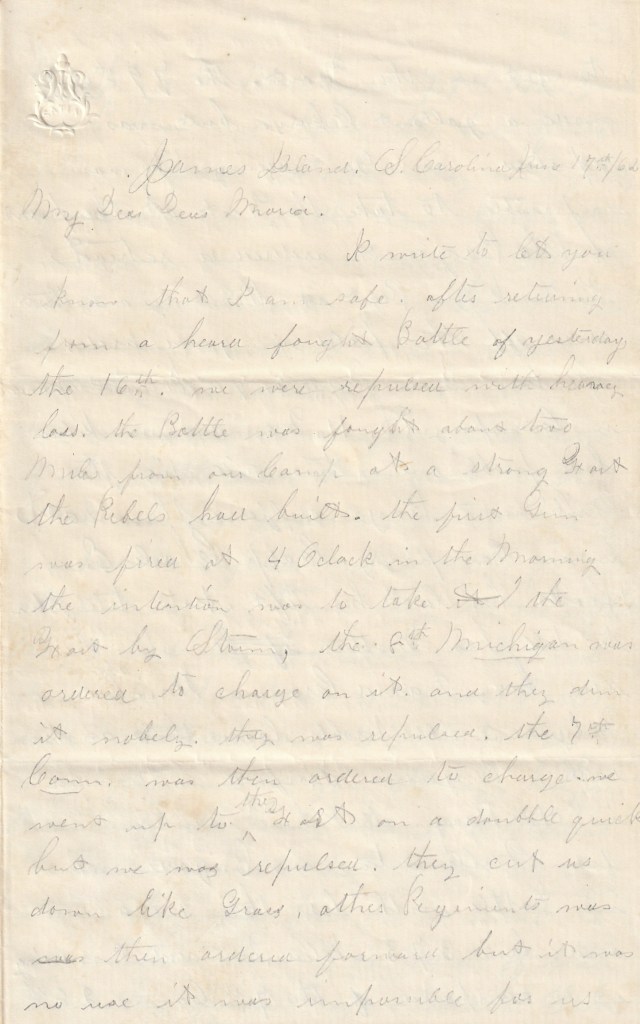 James Island. S. Carolina June 17th/62
My Dear Dear Maria.
I write to let you
know that I am safe. after retiring
from a heard fought Battle of yesterday
the 16th. we were repulsed with heavey
loss. the Battle was fought about two
Mile from our Camp at a strong Fort
the Rebels had built. the first Gun
was fired at 4 Oclock in the Morning
the intention was to take it / the
Fort by Storm, the 8th Michigan was
ordered to charge on it. and they dun
it nobely. they was repulsed. the 7th
Conn. was then ordered to charge. we
went up to the Fort on a doubble quick
but we was repulsed. they cut us
down like Grass, other Regiments was
then ordered forward but it was
no use it was impossible for us